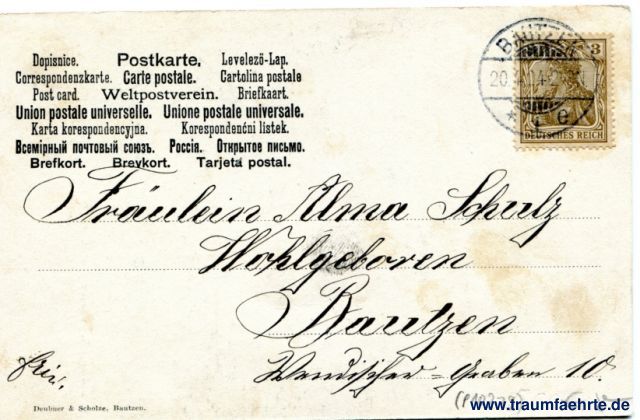 Dopisnice. Postkarte. Levelező-Lap.
Correspondenzkarte. Carte postale. Cartolina postale
Post card. Weltpostverein. Briefkaart.
Union postale universelle. Unione postale universale.
Karta korespondencyjna. Korespondenční listek.
Всемірный почтовый союзъ. Россія. Открытое письмо.
Brefkort. Brevkort. Tarjeta postal.
BAUTZEN
20.
3
DEUTSCHES REICH
Fräulein Alma Schulz
Wohlgeboren
Bautzen
Wendischer-Graben 10.
frei.
Deubner & Scholze, Bautzen.
www.traumfaehrte.de